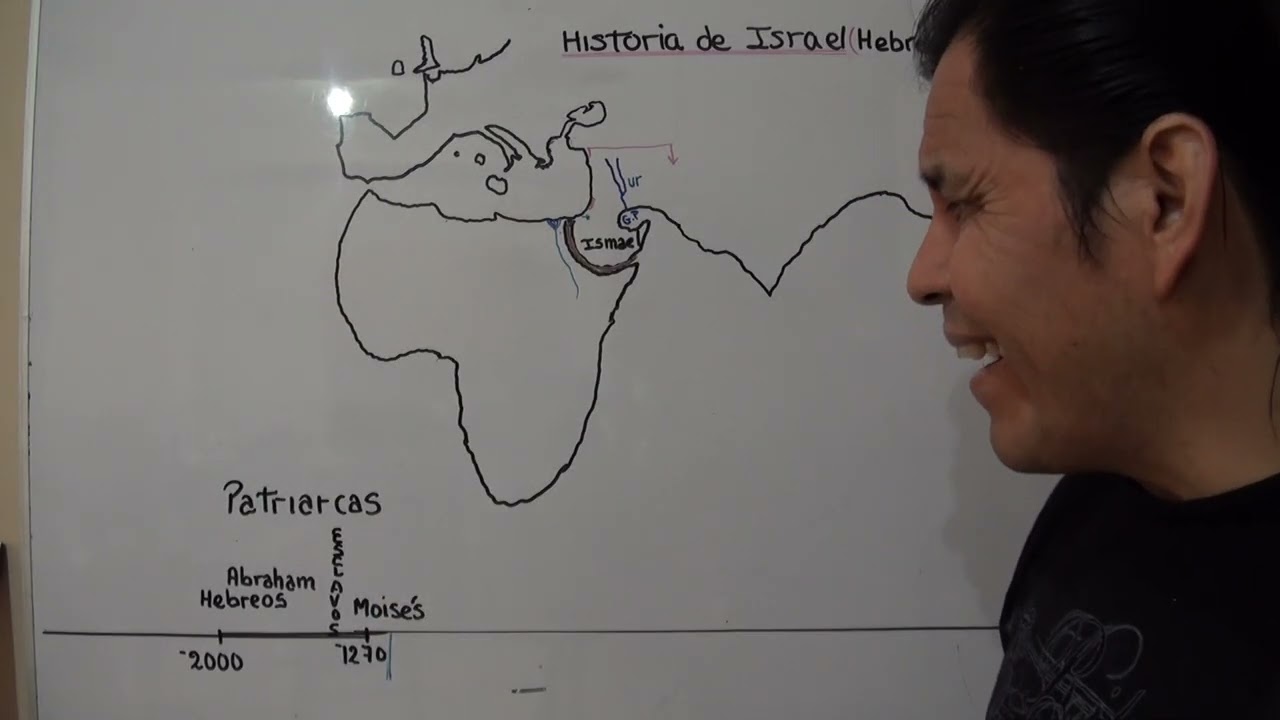 Historia de Israel (Hebr
ur
G.P
Ismael
Patriarcas
ESCLAVOS
Abraham
Hebreos
Moisés
-2000
-1270